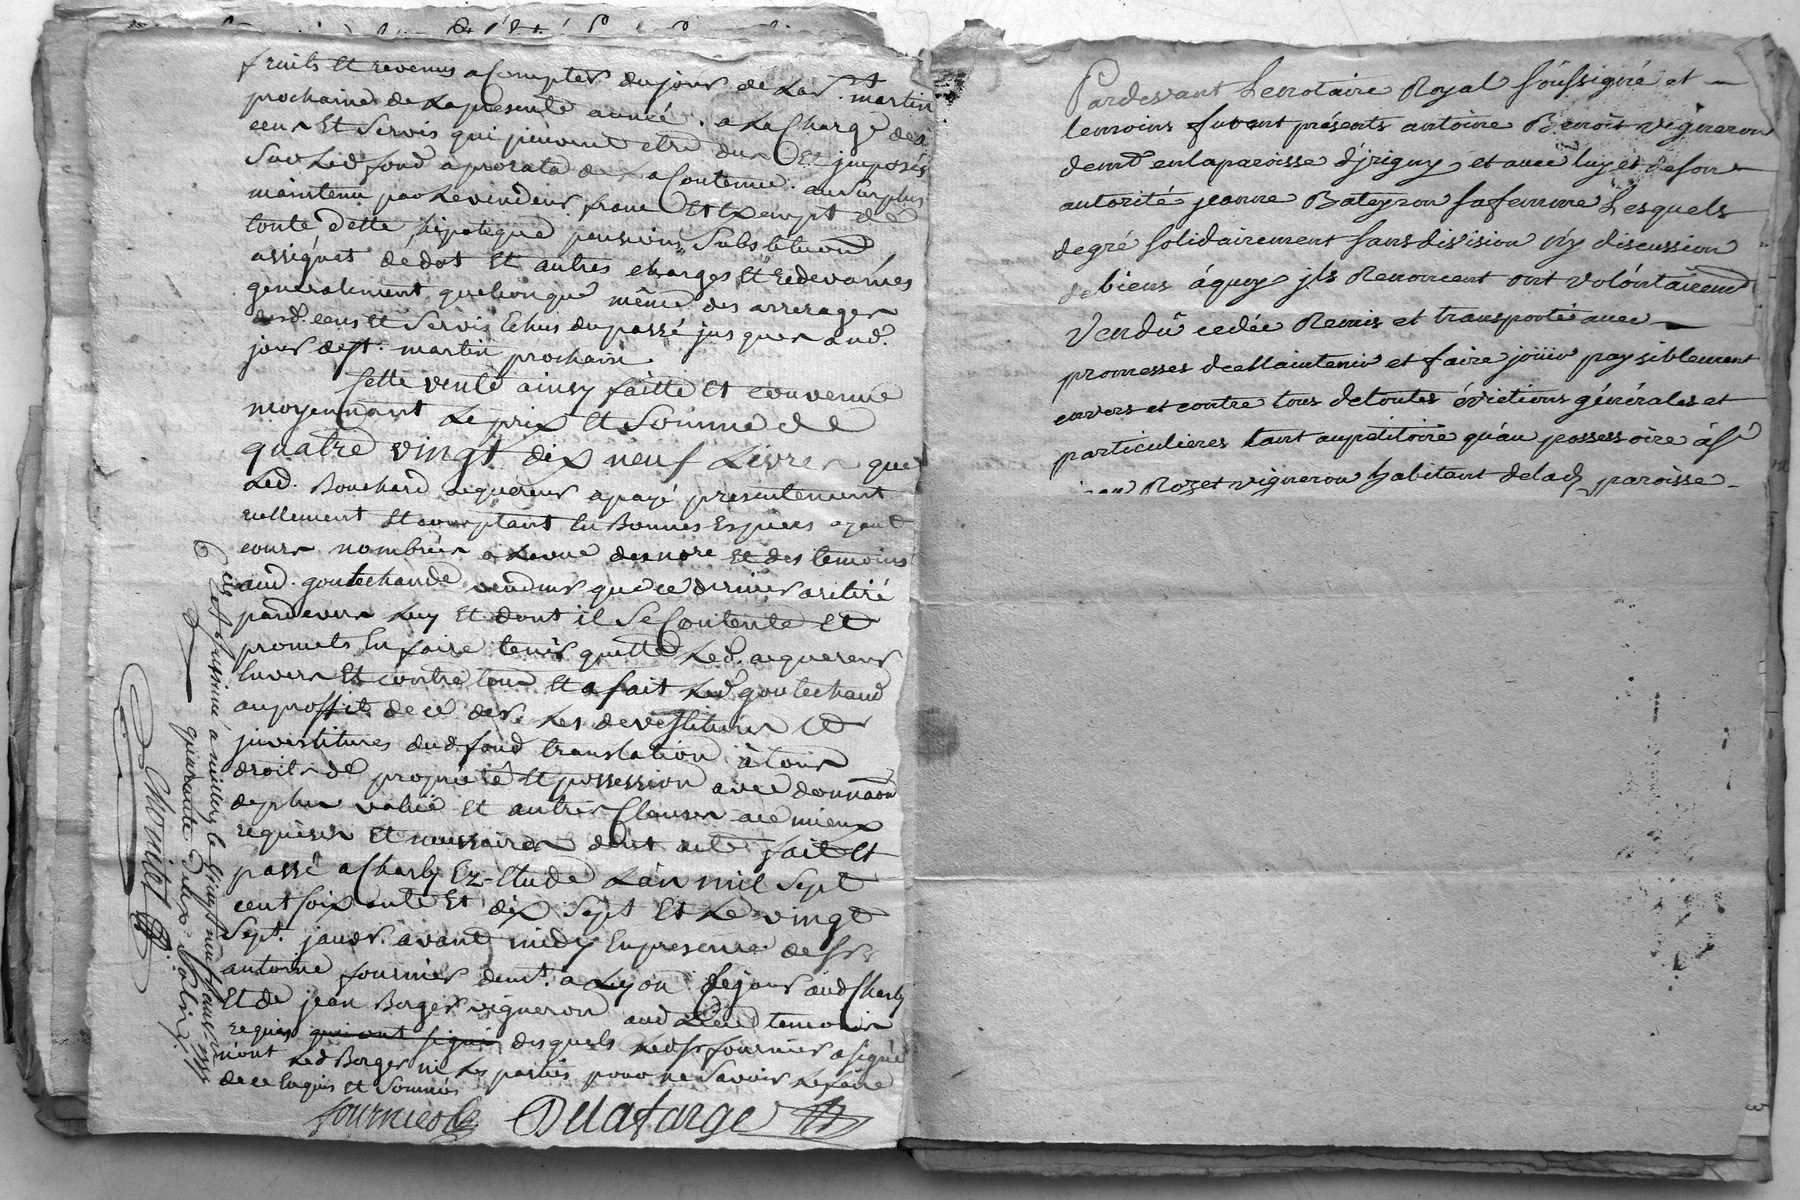 fruits et revenus a Compter du jour de La St. martin
prochaine de La presente année. a La Charge des
cens Et Servis qui peuvent etre dus Et jmposés
Sur Led fond a prorata de La Contenue. au Surplus
maintenu par Le vendeur franc Et Exempt de
toute dette hipoteque pensions Substituon
assignat de dot Et autres charges Et redevances
generalement quelconque même des arrerages
desd. cens Et Servis Echus du passé jusques aud.
jour de St. martin prochain.
Cette vente ainsy faitte Et convenue
moyennant Le prix Et Somme de
quatre vingt dix neuf Livres que
Led. Bouchard aquereur a payé presentement
reellement Et comptant En Bonnes Especes ayant
cours nombrées a La vue de nore Et des temoins
aud. goutechaude vendeur que ce dernier a retiré
pardevers Luy Et dont il Se Contente Et
promets En faire tenir quitte Led. aquereur
Envers Et contre tous Et a fait Led goutechaud
au proffit de ce der. Les devestitures Et
jnvestitures dud fond translation de tous
droits de proprieté Et possession avec donnaon
de plus value Et autres Clauses au mieux
requises Et necessaires dont acte fait Et
passé a Charly Ez-Etude L'an mil Sept
cent soixante Et dix Sept Et Le vingt
Sept. janvr. avant midy En presence de Srs
antoine fournier demt. a Lyon de jour aud Charly
Et de jean Berger vigneron aud Lieu temoins
requis qui ont signé desquels Led Sr fournier a signé
n'ont Led Berger ni Les parties pour ne Savoir Le faire
de ce Enquis Et Sommés
fournier Delafarge
quarante
Pardevant Le notaire Royal Soussigné et
temoins furent présents antoine Benoit vigneron
demt en la paroisse d'jrigny et avec luy et de son
autorité jeanne Bateyron sa femme Lesquels
de gré solidairement sans division n'y discussion
de biens áquoy jls Renoncent ont volontairemt
Vendû cedée Remis et transporté avec
promesses de Maintenir et faire jouir paysiblement
envers et contre tous de toutes évictions générales et
particulieres tant au petitoire qu'au possessoire à Sr
jean Rozet vigneron habitant de lad. paroisse